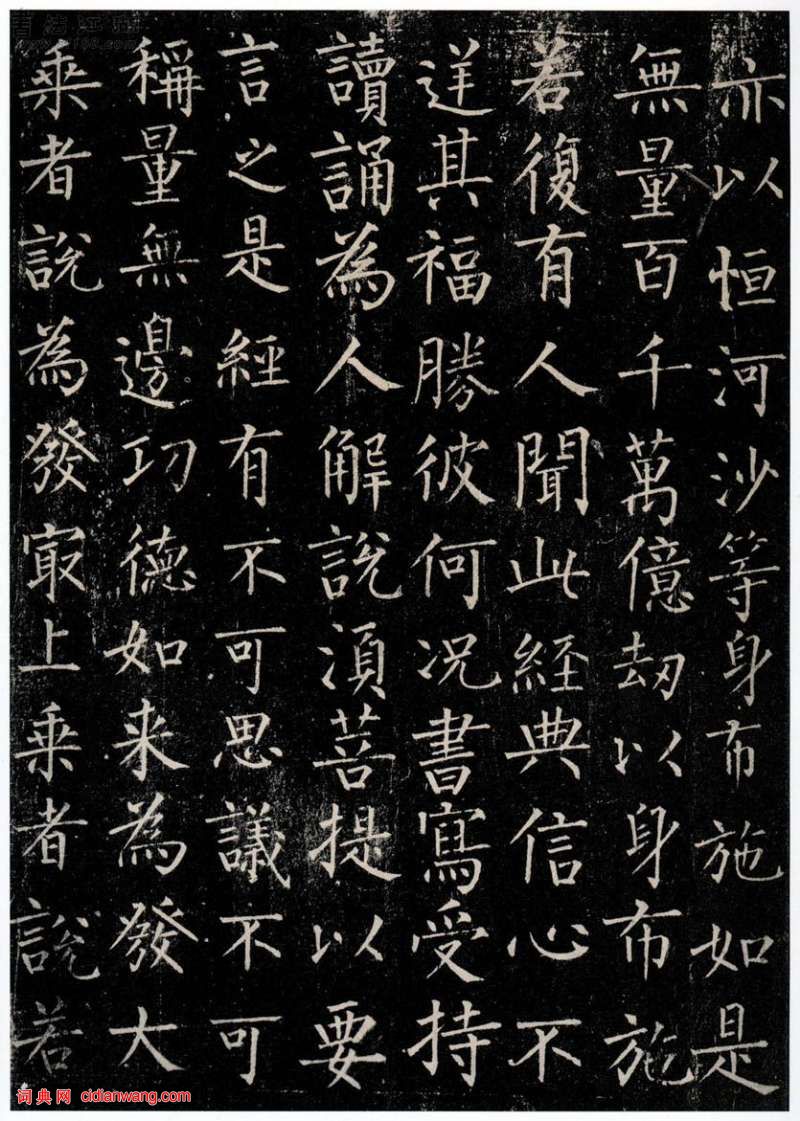 亦以恒河沙等身布施如是
無量百千萬億劫以身布施
若復有人聞此経典信心不
逆其福勝彼何况書寫受持
讀誦為人解說湏菩提以要
言之是經有不可思議不可
稱量無邊功德如来為發大
乗者說為發㝡上乗者說若
词典网 cidianwang.com